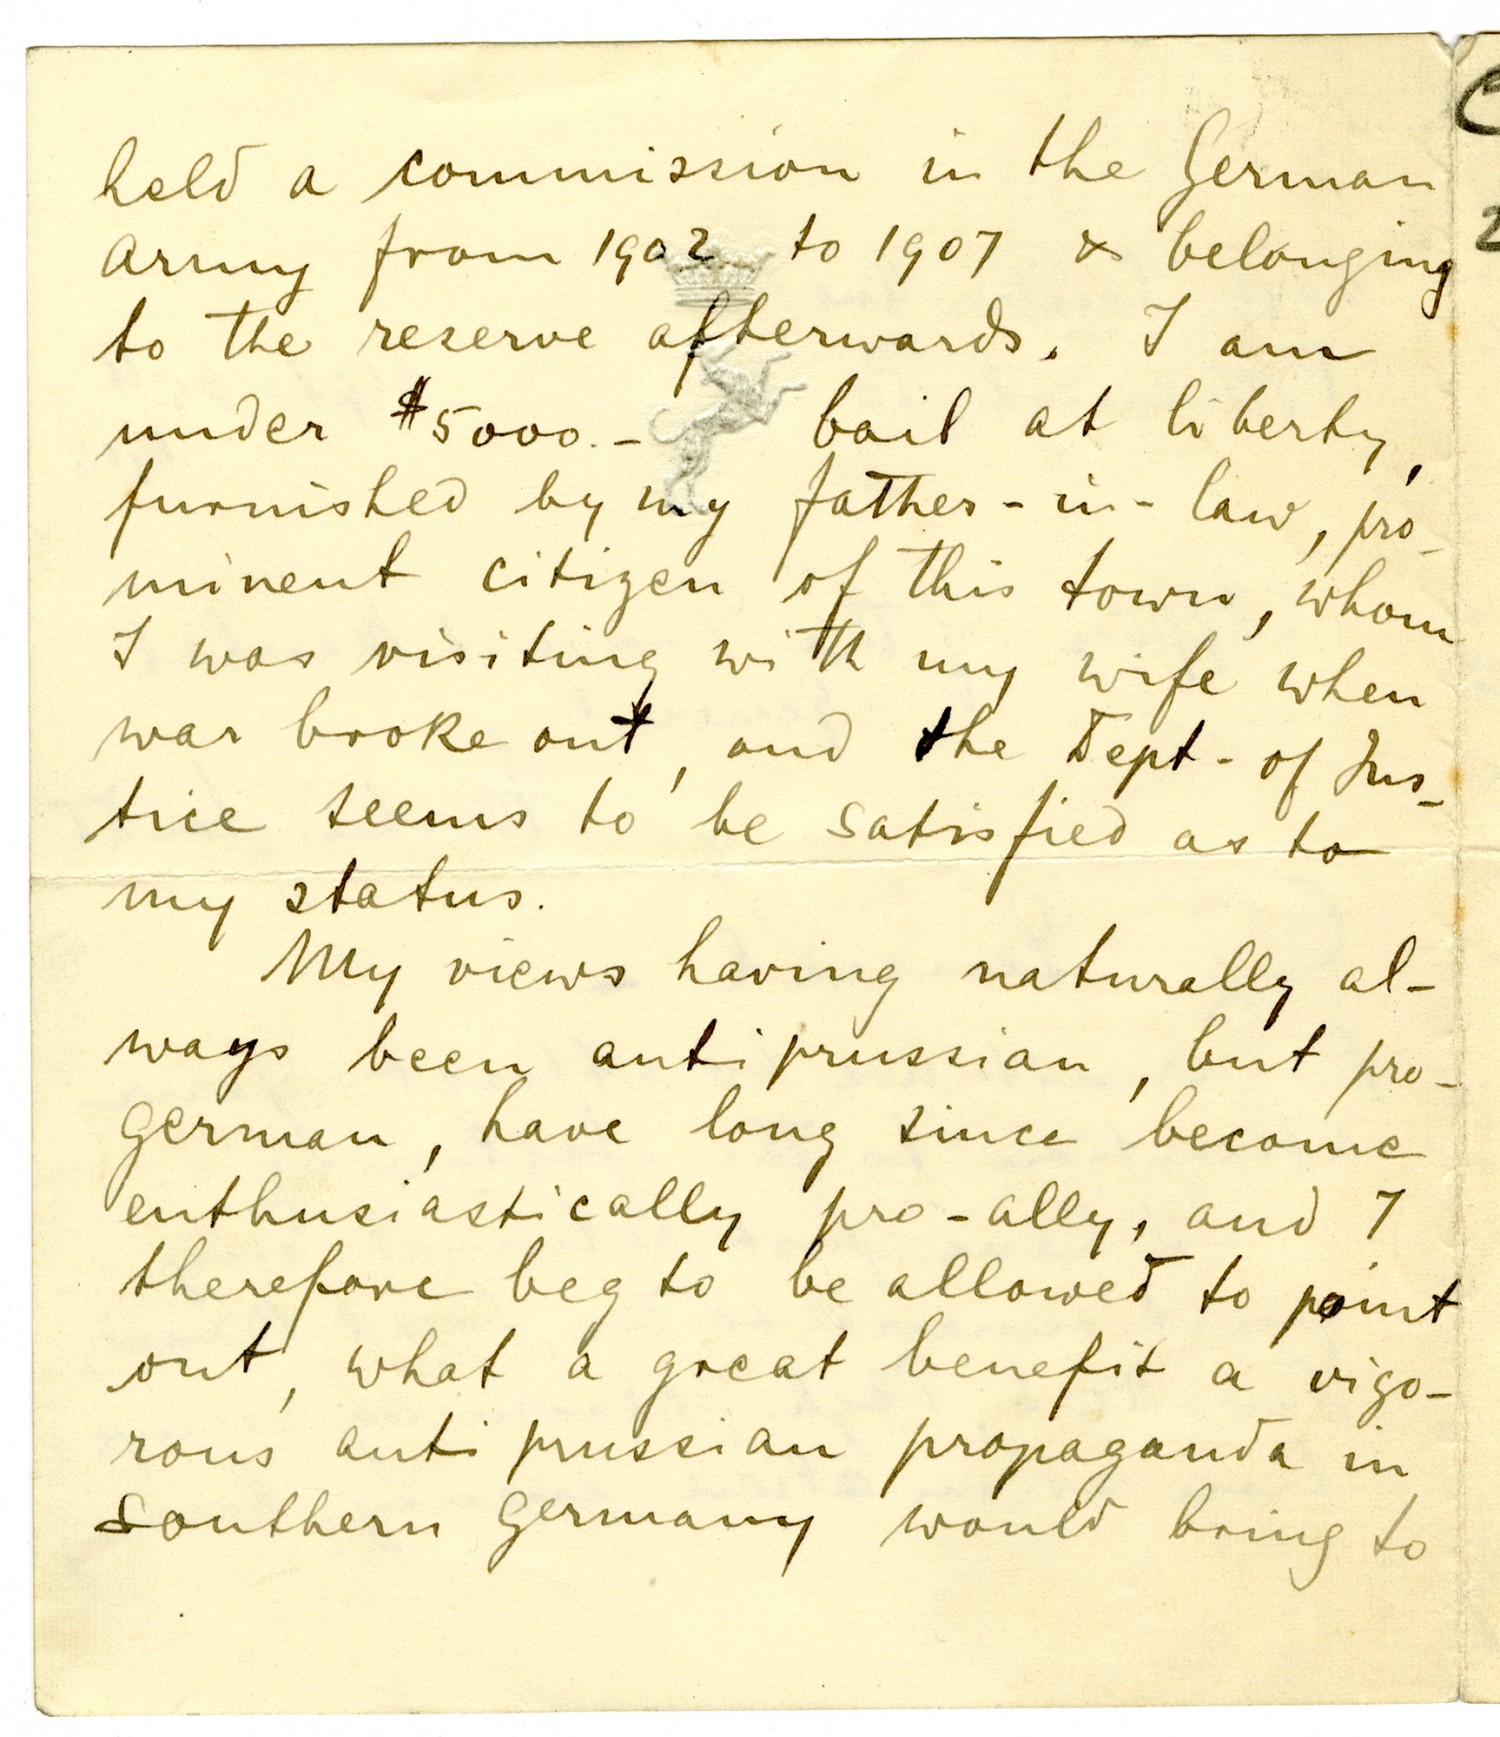 held a commission in the German
army from 1902 to 1907 & belonging
to the reserve afterwards. I am
under $5000.- bail at liberty,
furnished by my father-in-law, pro-
minent citizen of this town, whom
I was visiting with my wife when
war broke out, and the Dept. of Jus-
tice seems to be satisfied as to
my status.
My views having naturally al-
ways been antiprussian, but pro-
german, have long since become
enthusiastically pro-ally, and I
therefore beg to be allowed to point
out, what a great benefit a vigo-
rous antiprussian propaganda in
southern Germany would bring to